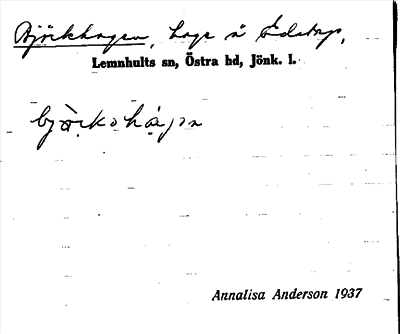 Björkhagen, hage å Ödetorp,
Lemnhults sn, Östra hd, Jönk. l.
bjòrkohágen
Annalisa Anderson 1937